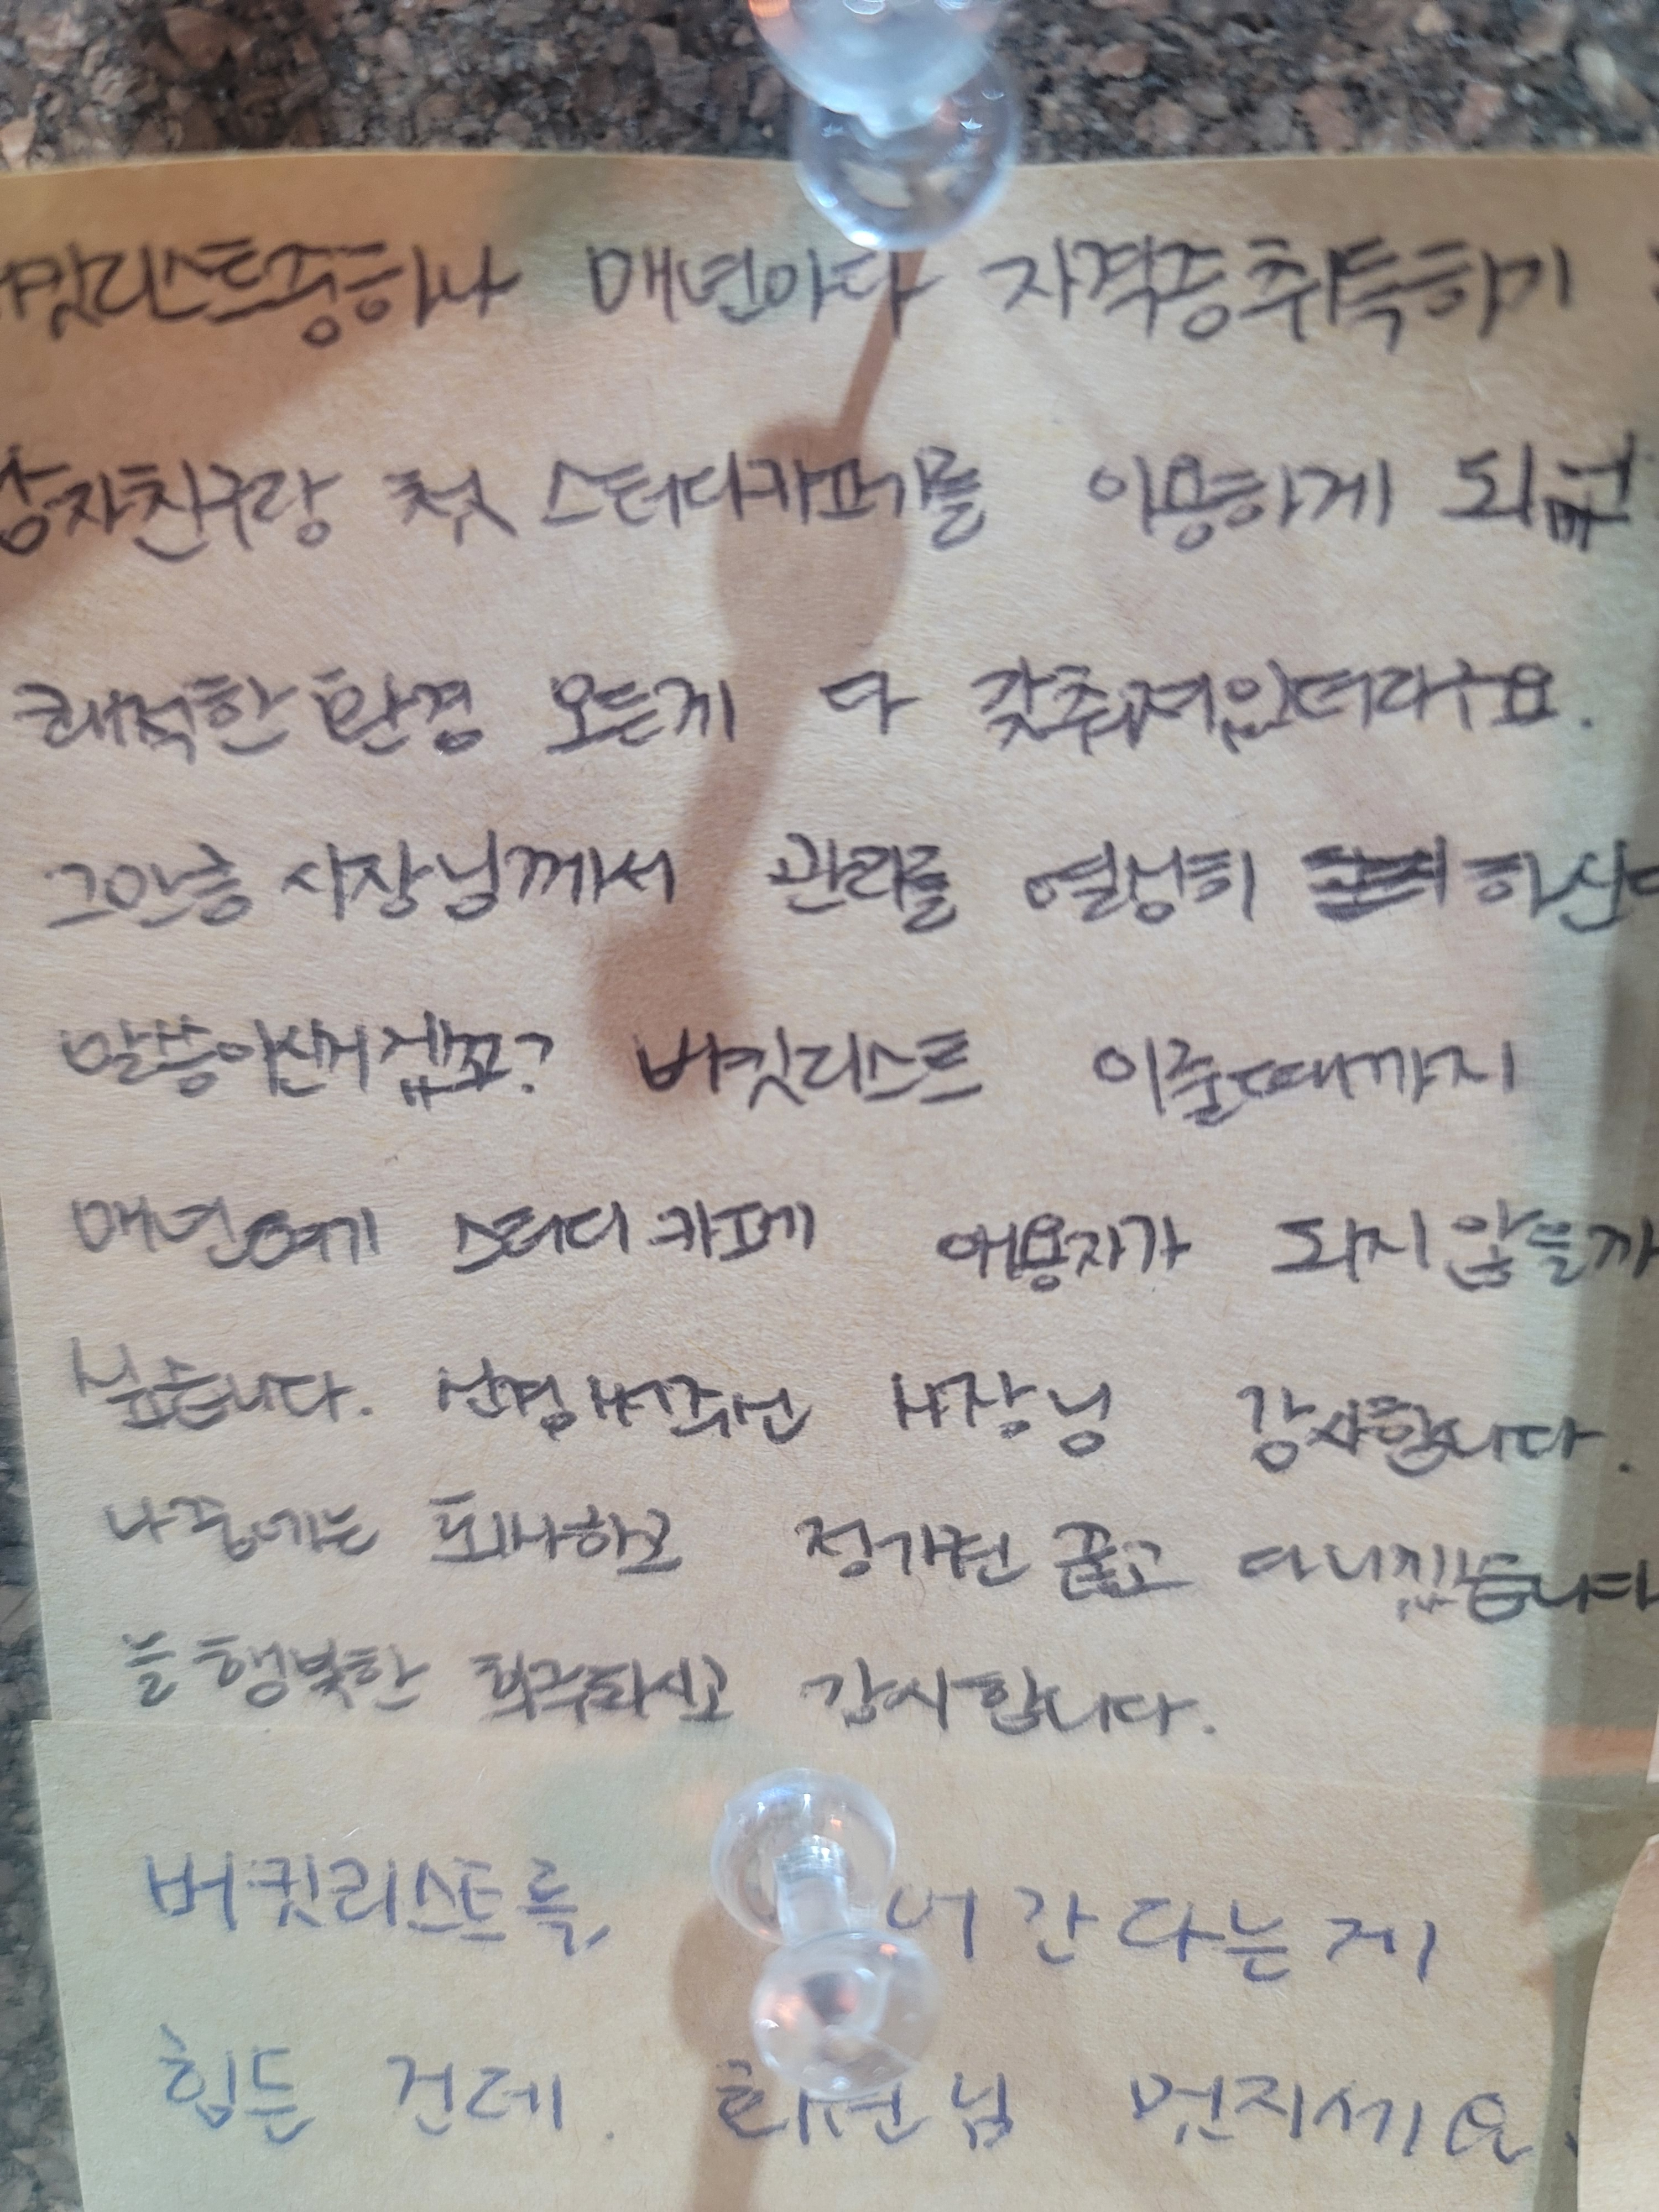 버킷리스트중하나 매년마다 자격증취득하기
남자친구랑 첫 스터디카페를 이용하게 되
쾌적한 환경 모든게 다 갖춰져있더라구요.
그만큼 사장님께서 관리를 열성히 하신다
말씀이신거겠죠? 버킷리스트 이룰때까지
매년 여기 스터디 카페 애용자가 되지 않을까
싶습니다. 신경써주신 사장님 감사합니다.
나중에는 퇴사하고 정기권 끊고 다니겠습니다
늘 행복한 하루되시고 감사합니다.
버킷리스트를, 간다는게
힘든 건데. 회원님 멋지세요.